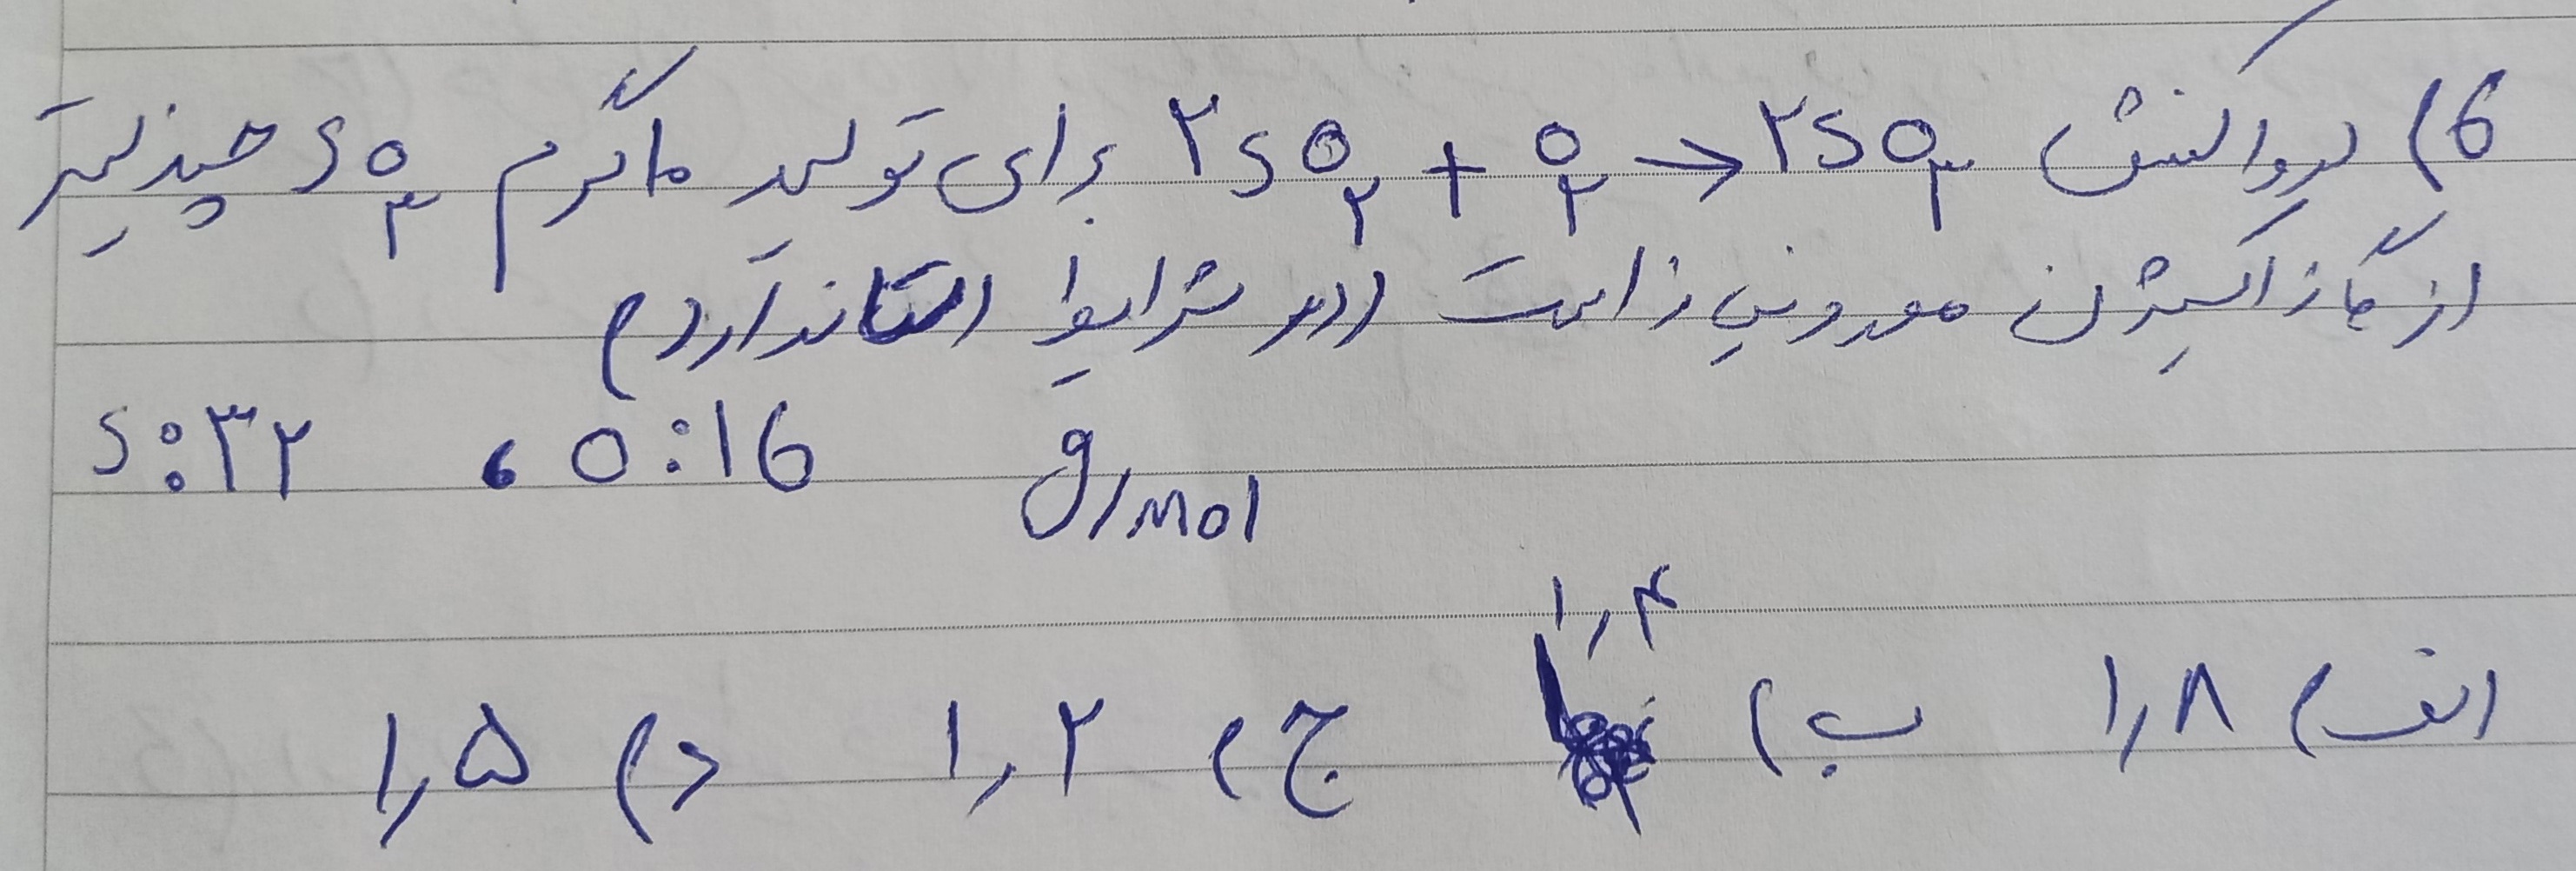 6) در واکنش ۲SO۲ + O۲ → ۲SO۳ برای تولید ۱۰ گرم SO۳ چند لیتر
از گاز اکسیژن مورد نیاز است (در شرایط استاندارد)
S:۳۲ ، O:16 g/mol
۱,۴
الف) ۱,۸ ب) ج) ۱,۲ د) ۱,۵